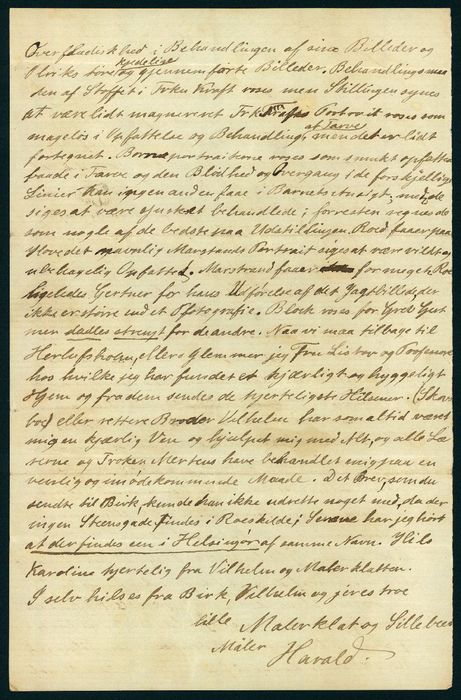 Overfladiskhed i Behandlingen af sine Billeder og
kjedelige
Ulriks tøre og gjennemførte Billeder. Behandlingsmaa
den af Stoffet i Frkn Kraft roses men Stillingen synes
at være lidt magneret Frk Krafts Portrait roses som
mageløs i Opfattelse og Behandling, men det er lidt
at Farve
fortegnet. Børneportraiterne roses som smukt opfattede
baade i Farve og den Blødhed og Overgang i de forskjellige
Linier kun ingen anden faae i Barnets Ansigt, med, de
siges at være ønsket behandlede i forresten regnes de
som nogle af de bedste paa Udstillingen. Roed faaer paa
Hovedet navnlig Marstrands Portrait siges at være vildt og
ubehagelig Opfattet. Marstrand faaer for meget Roes
ligeledes Gertner for hans Udførelse af det Jagtbillede, der
ikke er større end et Photografie. Block roses for
men dadles strengt for de andre. Naa vi maa tilbage til
Herlufsholm, ellers glemmer jeg Fru Listov og Professoren
hos hvilke jeg har fundet et kjærligt og hyggeligt
Hjem og fra dem sendes de hjerteligste Hilsner. (Skov
bod) eller rettere Broder Vilhelm har som altid været
mig en kjærlig Ven og hjulpet mig med Alt, og alle Læ
rerne og Frøken Mertens have behandlet mig paa en
venlig og imødekommende Maade. Det Brev, som du
sendte til Birk, kunde han ikke udrette noget med, da der
ingen Steensgade findes i Roeskilde; Senere har jeg hørt
at der findes een i Helsingør af samme Navn. Hils
Karoline hjertelig fra Vilhelm og Malerklatten.
I selv hilses fra Birk, Vilhelm og jeres troe
lille Malerklat og Lillebroder
Maler Harald.